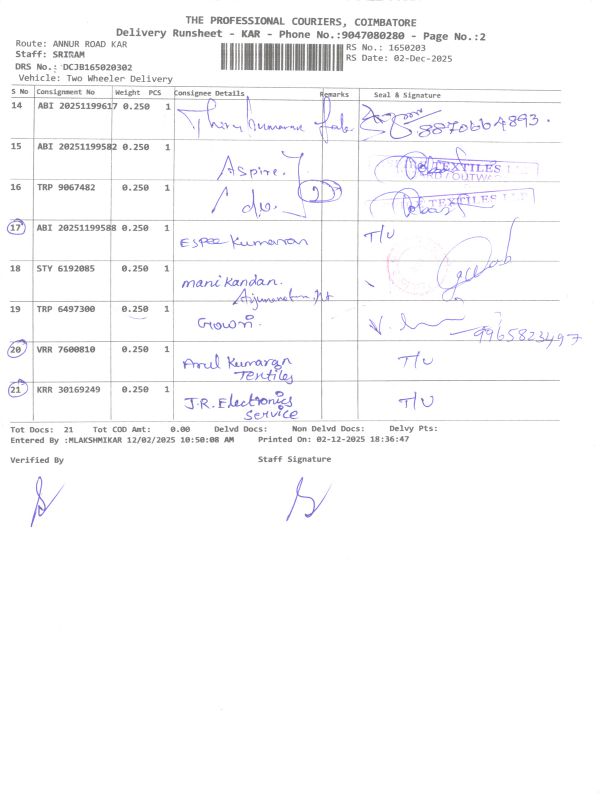 THE PROFESSIONAL COURIERS, COIMBATORE
Delivery Runsheet - KAR - Phone No.:9047080280 - Page No.:2
Route: ANNUR ROAD KAR
RS No.: 1650203
Staff: SRIRAM
RS Date: 02-Dec-2025
DRS No.: DCJB165020302
Vehicle: Two Wheeler Delivery
S No Consignment No Weight PCS Consignee Details Remarks Seal & Signature
14 ABI 20251199617 0.250 1 8870664893.
15 ABI 20251199582 0.250 1 Aspire. TEXTILES
16 TRP 9067482 0.250 1 TEXTILES
17 ABI 20251199588 0.250 1 Espee Kumaran T/U
18 STY 6192085 0.250 1 mani kandan.
19 TRP 6497300 0.250 1 Crown. 9965823497
20 VRR 7600810 0.250 1 Arul Kumaran T/U
Textiles
21 KRR 30169249 0.250 1 J.R. Electronics T/U
Service
Tot Docs: 21 Tot COD Amt: 0.00 Delvd Docs: Non Delvd Docs: Delvy Pts:
Entered By :MLAKSHMIKAR 12/02/2025 10:50:08 AM Printed On: 02-12-2025 18:36:47
Verified By Staff Signature